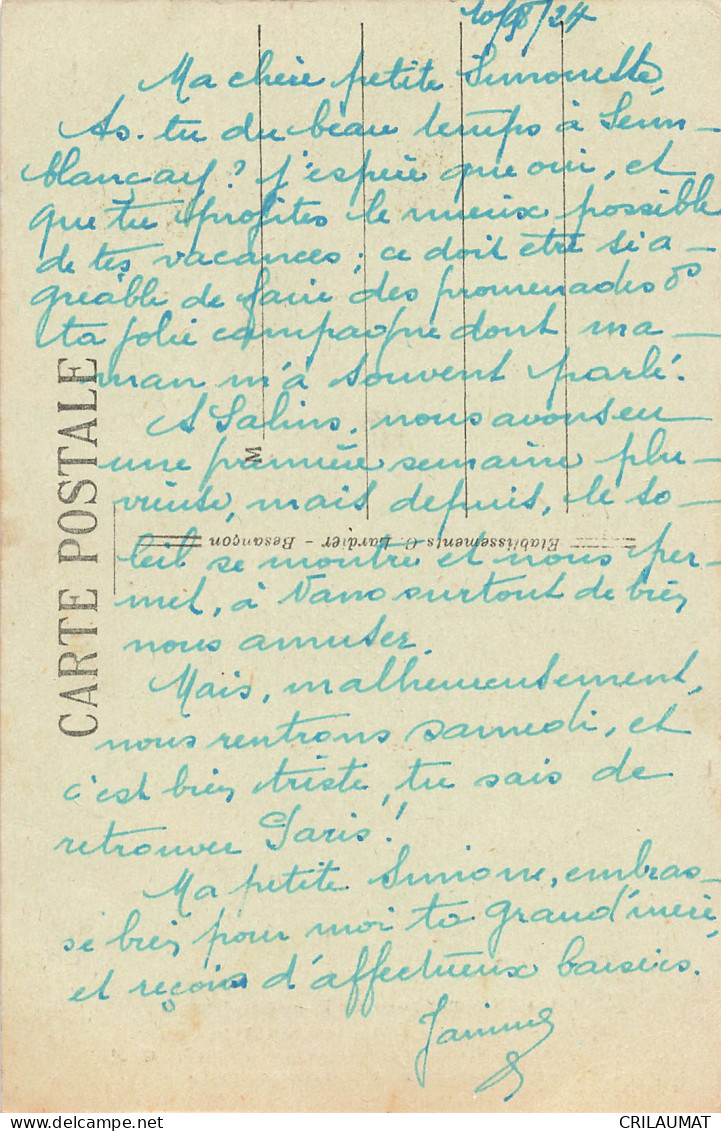 10/8/24
Ma chère petite Simonette,
As-tu du beau temps à Sem-
blançay? J'espère que oui, et
que tu profites le mieux possible
de tes vacances; ce doit être si a-
gréable de faire des promenades ds
ta jolie campagne dont ma-
man m'a souvent parlé.
A Salins, nous avons eu
une première semaine plu-
vieuse, mais depuis, le so-
leil se montre et nous per-
met, à Nano surtout de bien
nous amuser.
Mais, malheureusement,
nous rentrons samedi, et
c'est bien triste, tu sais de
retrouver Paris!
Ma petite Simone, embras-
se bien pour moi ta grand'mère,
et reçois d'affectueux baisers.
CARTE POSTALE
M
Etablissements C. Lardier - Besançon
CRILAUMAT